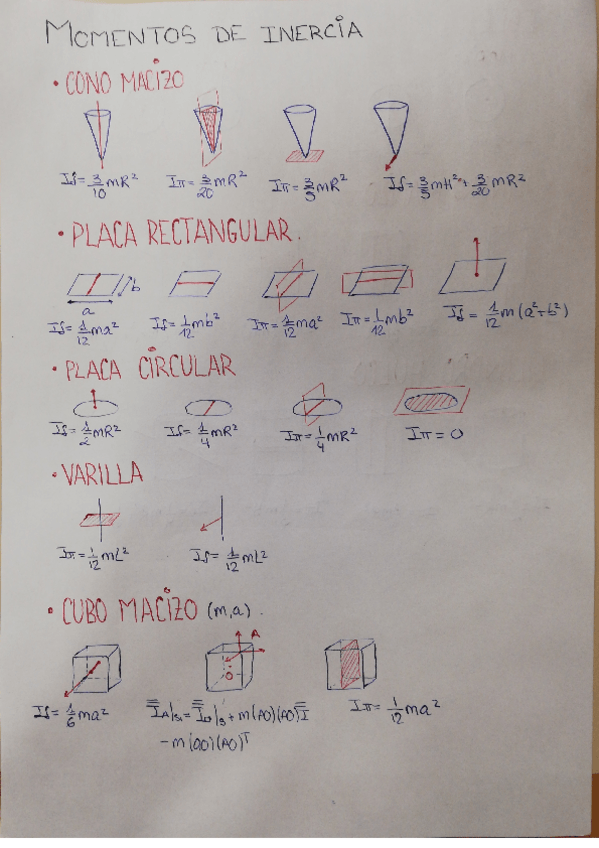 MOMENTOS DE INERCIA
• CONO MACIZO
Iδ = 3/10 mR² Iπ = 3/20 mR² Iπ = 3/5 mR² Iδ = 3/5 mH² + 3/20 mR²
• PLACA RECTANGULAR.
a b
Iδ = 1/12 ma² Iδ = 1/12 mb² Iπ = 1/12 ma² Iπ = 1/12 mb² Iδ = 1/12 m(a²+b²)
• PLACA CIRCULAR
Iδ = 1/2 mR² Iδ = 1/4 mR² Iπ = 1/4 mR² Iπ = 0
• VARILLA
Iπ = 1/12 mL² Iδ = 1/12 mL²
• CUBO MACIZO (m,a).
A
O
Iδ = 1/6 ma² + m(AO)(AO) I Iπ = 1/12 ma²
- m(AO)(AO)ᵀ